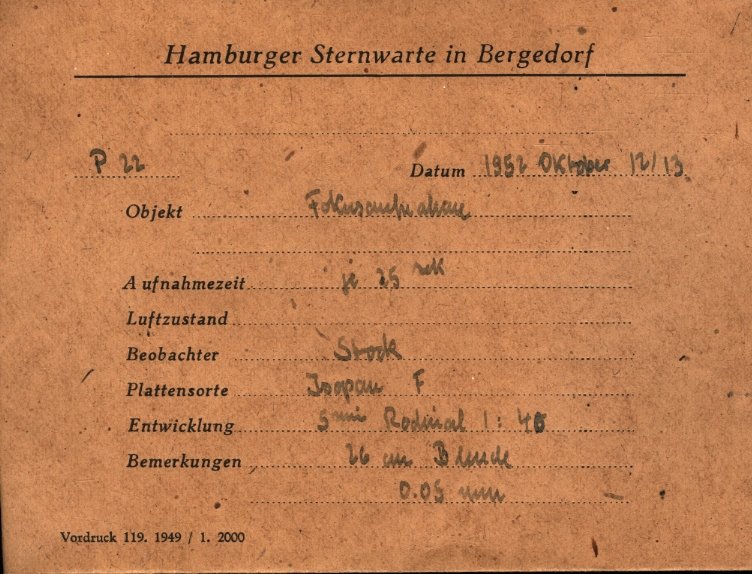 Hamburger Sternwarte in Bergedorf
P 22 Datum 1952 Oktober 12/13
Objekt Fokusaufnahme
Aufnahmezeit je 25 sek
Luftzustand
Beobachter Stock
Plattensorte Isopan F
Entwicklung 5 min Rodinal 1:40
Bemerkungen 26 cm Blende
0.05 mm
Vordruck 119. 1949 / 1. 2000